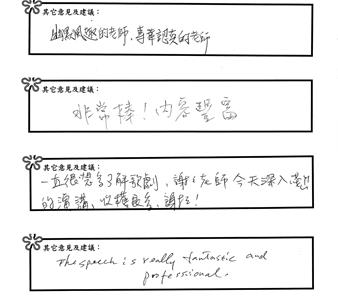 其它意見及建議：
幽默風趣的老師，專業認真的老師
其它意見及建議：
非常棒！內容豐富
其它意見及建議：
一直很想多了解歌劇，謝謝老師今天深入淺出
的演講，收穫良多，謝謝！
其它意見及建議：
The speech is really fantastic and
professional.